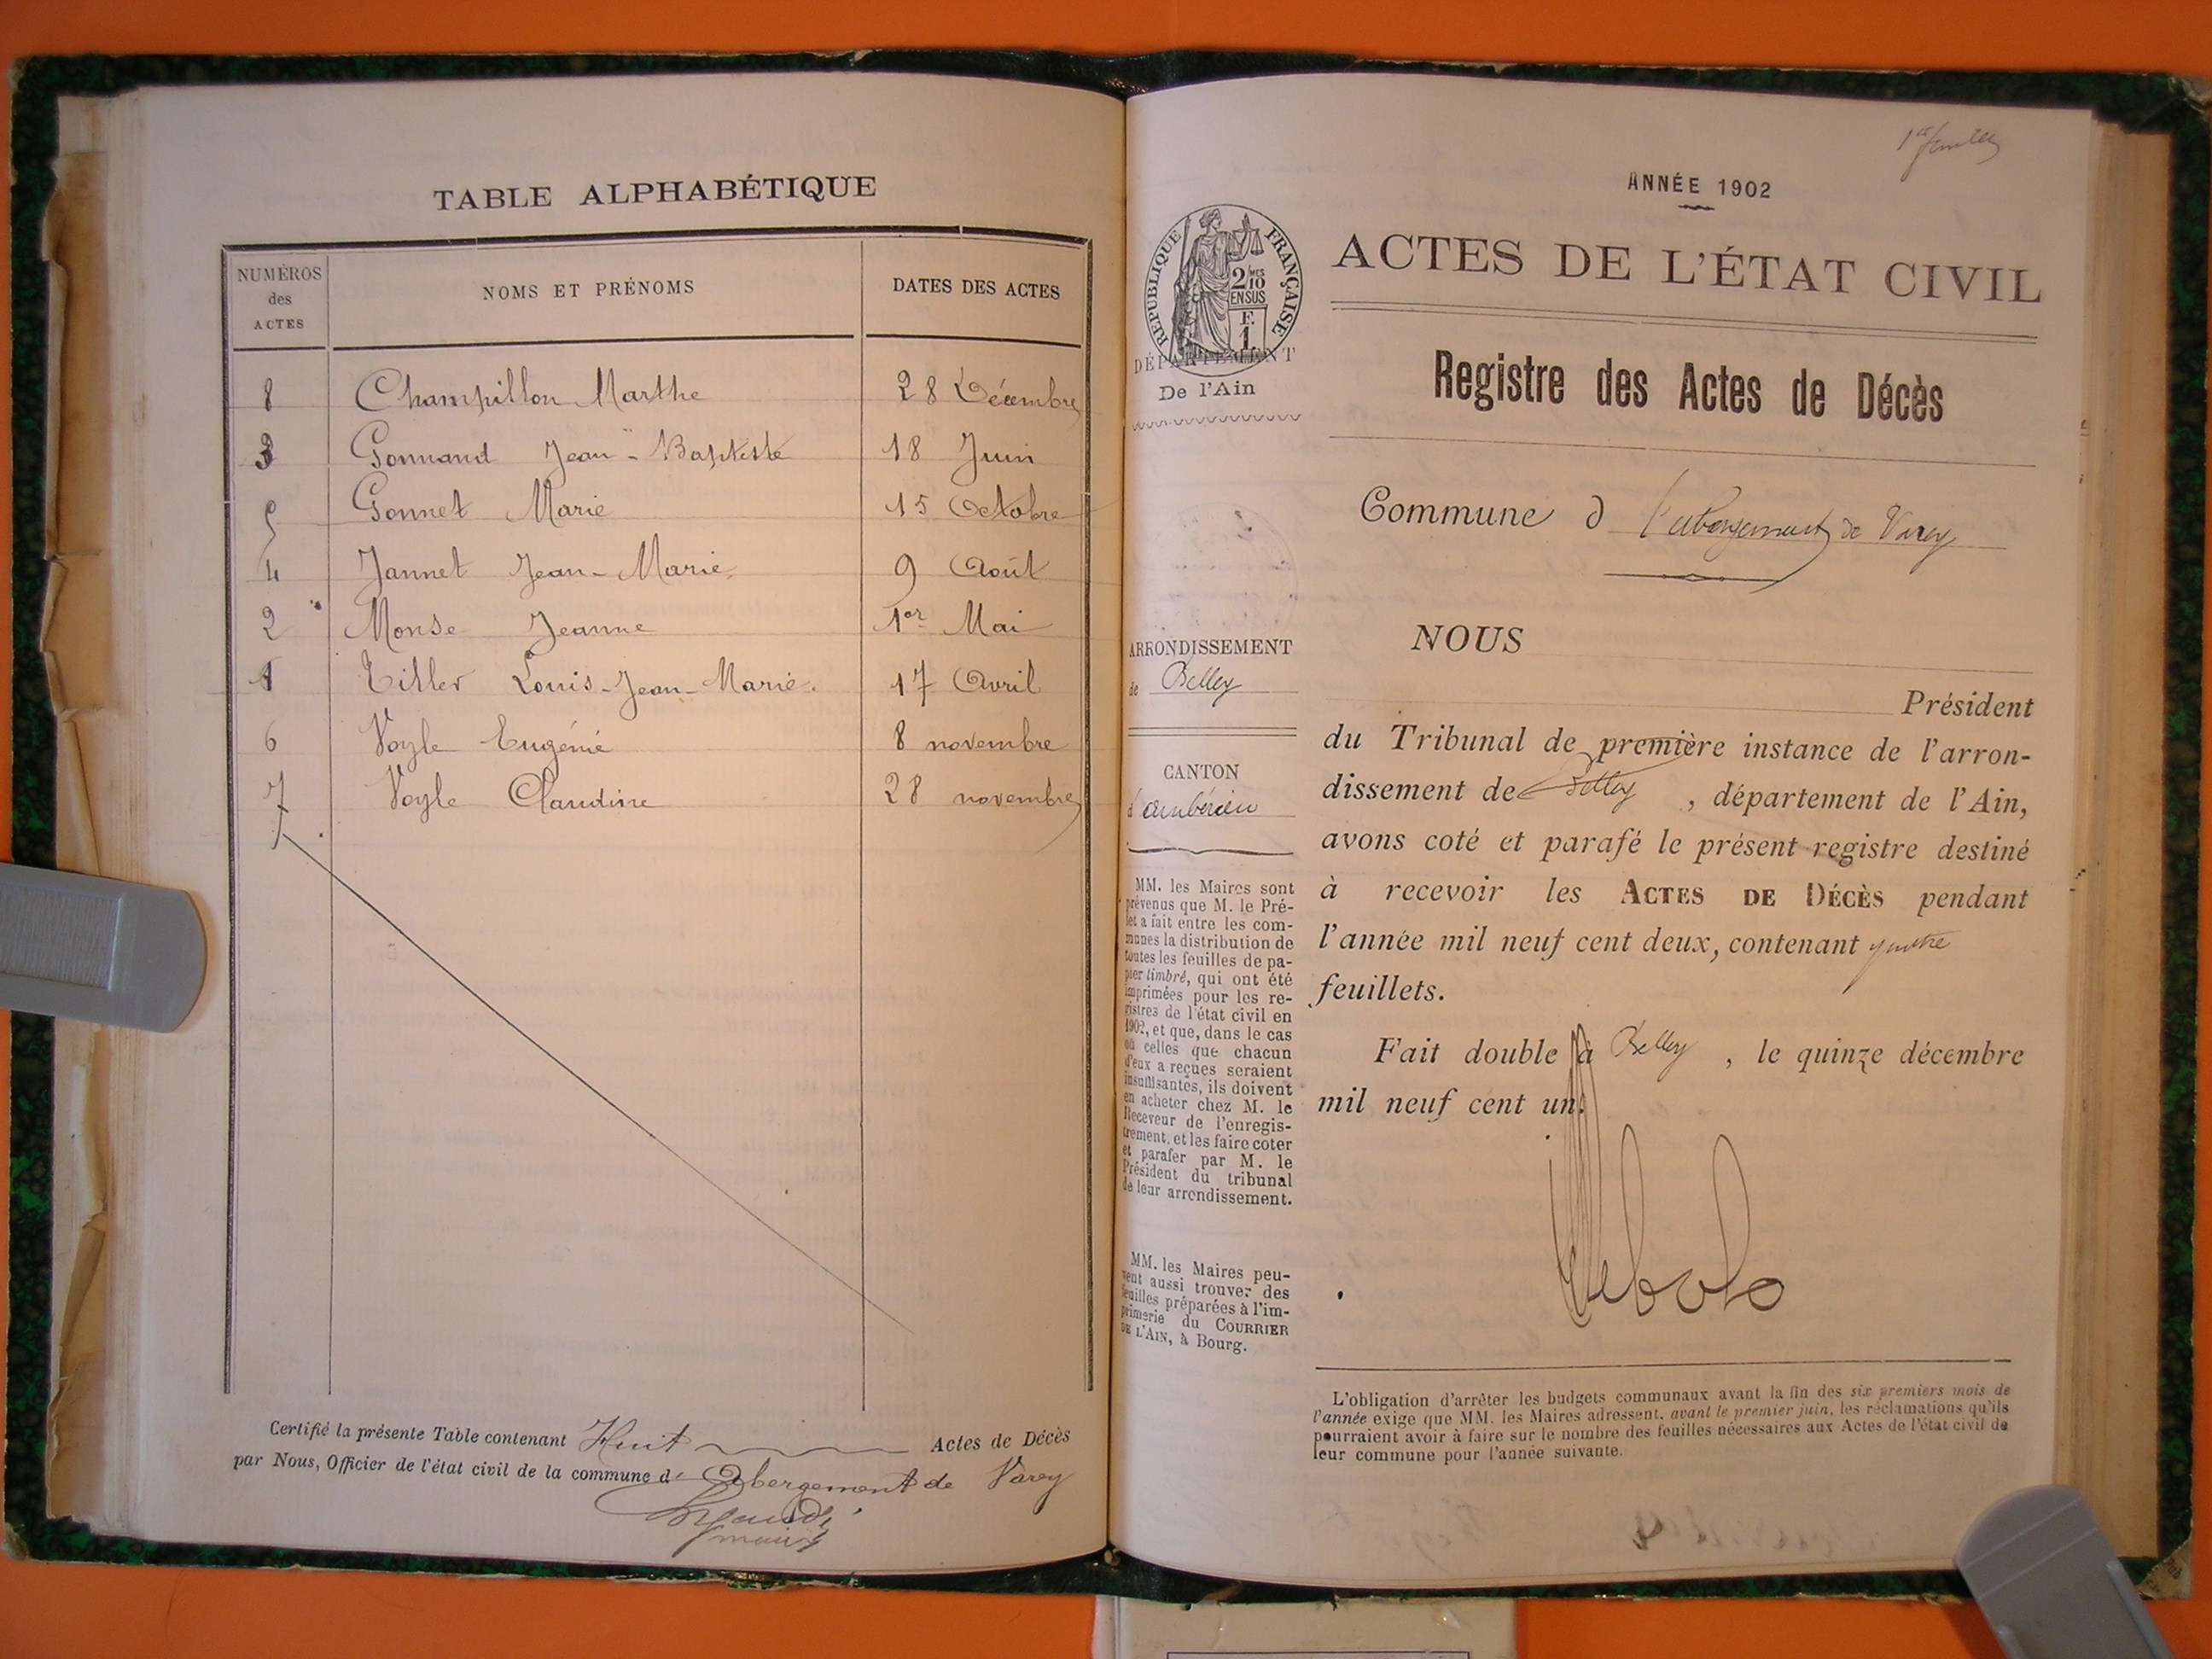 TABLE ALPHABÉTIQUE
NUMÉROS des ACTES
NOMS ET PRÉNOMS
DATES DES ACTES
8 Champillon Marthe 28 Décembre
3 Gonnand Jean-Baptiste 18 Juin
5 Gonnet Marie 15 Octobre
4 Jannet Jean-Marie 9 Août
2 Monse Jeanne 1er Mai
1 Titler Louis-Jean-Marie. 17 Avril
6 Voyle Eugénie 8 novembre
7 Voyle Claudine 28 novembre
Certifié la présente Table contenant Huit Actes de Décès
par Nous, Officier de l'état civil de la commune d' Abergement de Varey
1er feuillet
ANNÉE 1902
RÉPUBLIQUE FRANÇAISE
2/10mes
EN SUS
F.
1.
DÉPARTEMENT
De l'Ain
ACTES DE L'ÉTAT CIVIL
Registre des Actes de Décès
Commune d l'abergement de Varey
ARRONDISSEMENT
de Belley
CANTON
d'ambérieu
MM. les Maires sont
prévenus que M. le Pré-
fet a fait entre les com-
munes la distribution de
toutes les feuilles de pa-
pier timbré, qui ont été
imprimées pour les re-
gistres de l'état civil en
1902, et que, dans le cas
où celles que chacun
d'eux a reçues seraient
insuffisantes, ils doivent
en acheter chez M. le
Receveur de l'enregis-
trement, et les faire coter
et parafer par M. le
Président du tribunal
de leur arrondissement.
MM. les Maires peu-
vent aussi trouver des
feuilles préparées à l'im-
primerie du COURRIER
DE L'AIN, à Bourg.
NOUS
Président
du Tribunal de première instance de l'arron-
dissement de Belley , département de l'Ain,
avons coté et parafé le présent registre destiné
à recevoir les ACTES DE DÉCÈS pendant
l'année mil neuf cent deux, contenant quatre
feuillets.
Fait double à Belley , le quinze décembre
mil neuf cent un.
L'obligation d'arrêter les budgets communaux avant la fin des six premiers mois de
l'année exige que MM. les Maires adressent, avant le premier juin, les réclamations qu'ils
pourraient avoir à faire sur le nombre des feuilles nécessaires aux Actes de l'état civil de
leur commune pour l'année suivante.